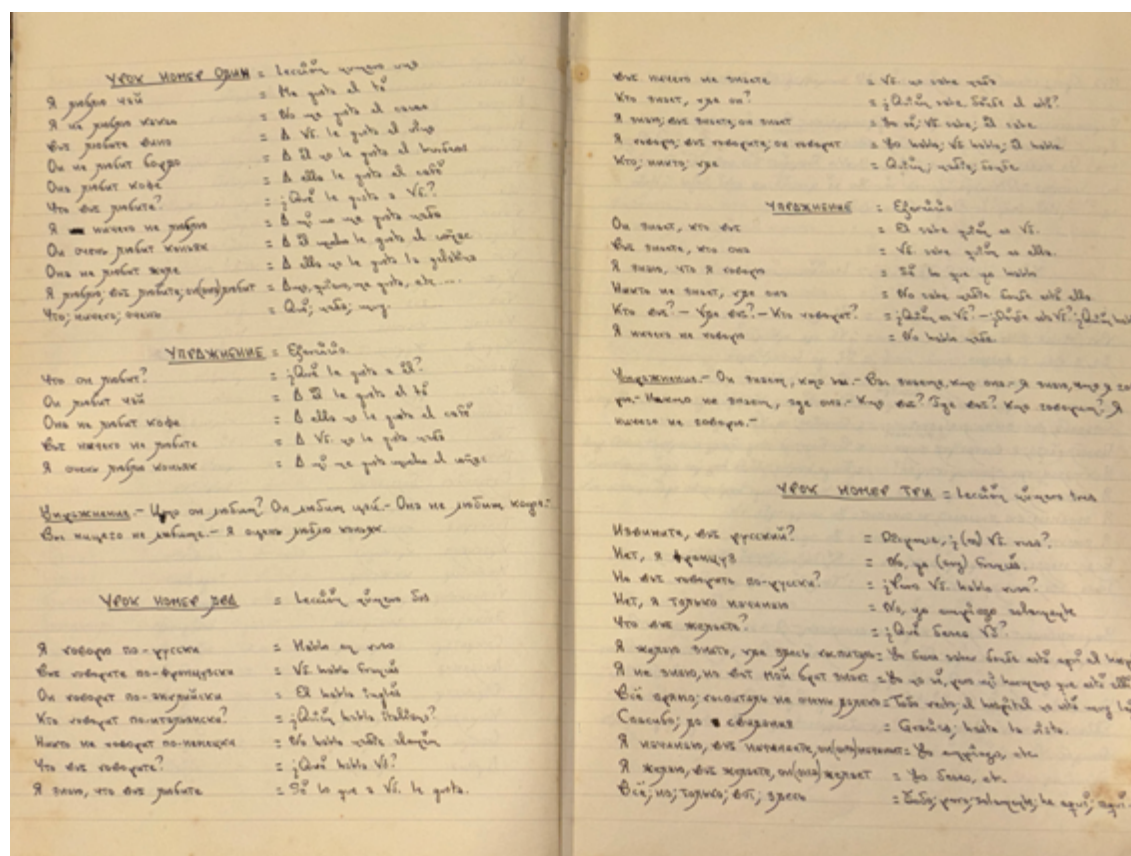 УРОК НОМЕР ОДИН = Lección número uno
Я люблю чай = Me gusta el té
Я не люблю какао = No me gusta el cacao
Вы любите вино = A Vd. le gusta el vino
Он не любит бордо = A él no le gusta el burdeos
Она любит кофе = A ella le gusta el café
Что вы любите? = ¿Qué le gusta a Vd.?
Я ничего не люблю = A mí no me gusta nada
Он очень любит коньяк = A él mucho le gusta el coñac
Она не любит желе = A ella no le gusta la gelatina
Я люблю; вы любите; он(она) любит = Amo, quiero, me gusta, etc...
Что; ничего; очень = Qué; nada; muy.
УПРАЖНЕНИЕ = Ejercicio
Что он любит? = ¿Qué le gusta a él?
Он любит чай = A él le gusta el té
Она не любит кофе = A ella no le gusta el café
Вы ничего не любите = A Vd. no le gusta nada
Я очень люблю коньяк = A mí me gusta mucho el coñac
Упражнение.- Что он любит? Он любит цай.- Она не любит кофе.-
Вы ницего не любите.- Я оцень люблю коньяк.
УРОК НОМЕР ДВА = Lección número dos
Я говорю по-русски = Hablo en ruso
Вы говорите по-французски = Vd. habla francés
Он говорит по-английски = Él habla inglés
Кто говорит по-итальянски? = ¿Quién habla italiano?
Никто не говорит по-немецки = No habla nadie alemán
Что вы говорите? = ¿Qué habla Vd.?
Я знаю, что вы любите = Sé lo que a Vd. le gusta.
Вы ничего не знаете = Vd. no sabe nada
Кто знает, где он? = ¿Quién sabe donde él está?
Я знаю; вы знаете; он знает = Yo sé; Vd. sabe; Él sabe
Я говорю; вы говорите; он говорит = Yo hablo; Vd. habla; Él habla
Кто; никто; где = Quién; nadie; donde
УПРАЖНЕНИЕ = Ejercicio
Он знает, кто вы = Él sabe quién es Vd.
Вы знаете, кто она = Vd. sabe quién es ella.
Я знаю, что я говорю = Sé lo que yo hablo
Никто не знает, где она = No sabe nadie donde está ella.
Кто вы? - Где вы? - Кто говорит? = ¿Quién es Vd.? - ¿Dónde está Vd.? ¿Quién
Я ничего не говорю = No hablo nada.
Упражнение.- Он знает, кто вы.- Вы знаете, кто она.- Я знаю, что я гово
рю.- Никто не знает, где она.- Кто вы? Где вы? Кто говорит? Я
ничего не говорю.-
УРОК НОМЕР ТРИ = Lección número tres
Извините, вы русский? = Dispense, ¿(es) Vd. ruso?
Нет, я француз = No, yo (soy) francés.
Но вы говорите по-русски? = ¿Pero Vd. habla ruso?
Нет, я только начинаю = No, yo empiezo solamente
Что вы желаете? = ¿Qué desea Vd?
Я желаю знать, где здесь госпиталь = Yo deseo saber donde está aquí el
Я не знаю, но вот мой брат знает = Yo no sé, pero mi hermano
Всё прямо; госпиталь не очень далеко = Todo recto; el hospital no está muy
Спасибо; до свидания = Gracias; hasta la vista.
Я начинаю, вы начинаете, он(она) начинает = Yo empiezo, etc.
Я желаю, вы желаете, он(она) желает = Yo deseo, etc.
Всё; но; только; вот; здесь = Todo; pero; solamente; he aquí; aquí.